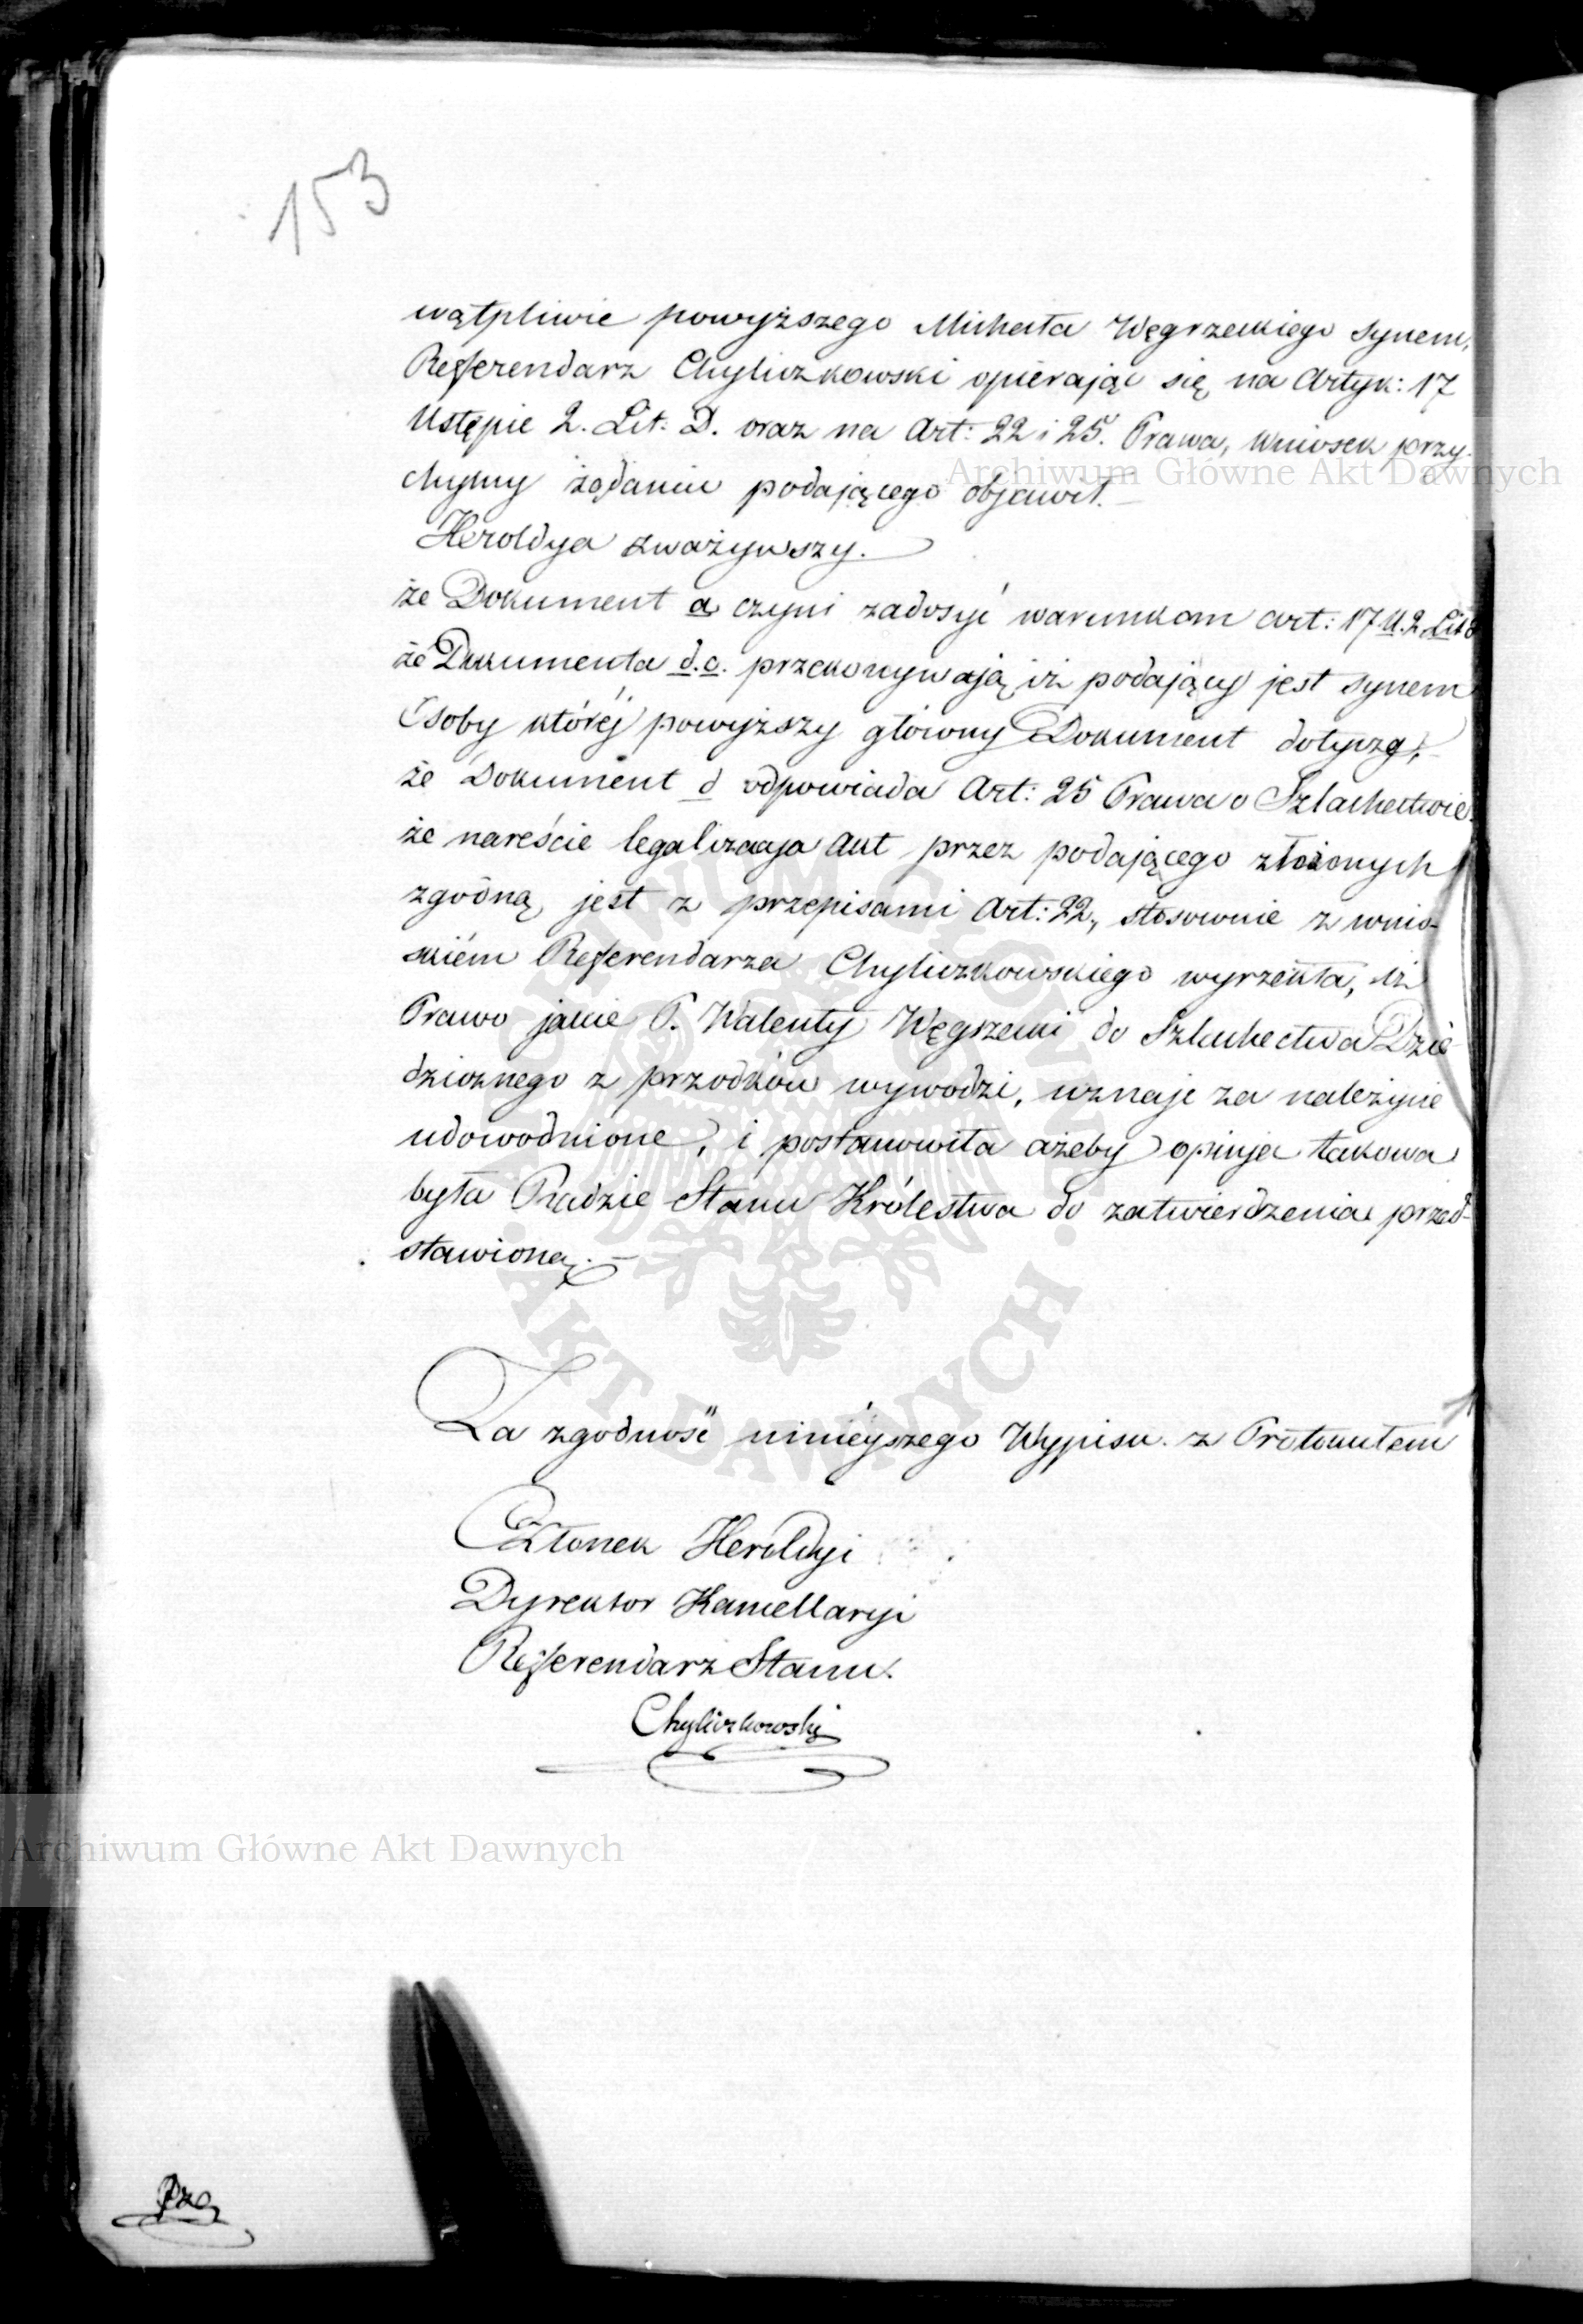 153
wątpliwie powyższego Michała Węgrzeckiego Synem,
Referendarz Chyliczkowski opierając się na Artyk: 17
Ustępie 2. Lit: D. oraz na Art: 22 i 25. Prawa, Wniosek przy-
chylny żądaniu podającego objawił. —
Heroldya zważywszy.
że Dokument a czyni zadosyć warunkom art: 17 U. 2 Lit d
że Dokumenta d. c. przekonywają iż podający jest synem
Osoby któréj powyższy główny Dokument dotyczą; —
że Dokument d odpowiada Art: 25 Prawa o Szlachectwie
że nareście legalizacya Akt przez podającego złożonych
zgodną jest z przepisami Art: 22, stosownie z wnio-
skiém Referendarza Chyliczkowskiego wyrzekła, iż
Prawo jakie P. Walenty Węgrzecki do Szlachectwa Dzie-
dzicznego z przodków wywodzi, uznaje za należycie
udowodnione, i postanowiła ażeby opinja takowa
była Radzie Stanu Królestwa do zatwierdzenia przed-
stawioną. —
Za zgodność ninieyszego Wypisu z Protokułem
Członek Heroldyi
Dyrektor Kancellaryi
Referendarz Stanu.
Chyliczkowski
Archiwum Główne Akt Dawnych
Archiwum Główne Akt Dawnych
ARCHIWUM GŁÓWNE · AKT DAWNYCH ·